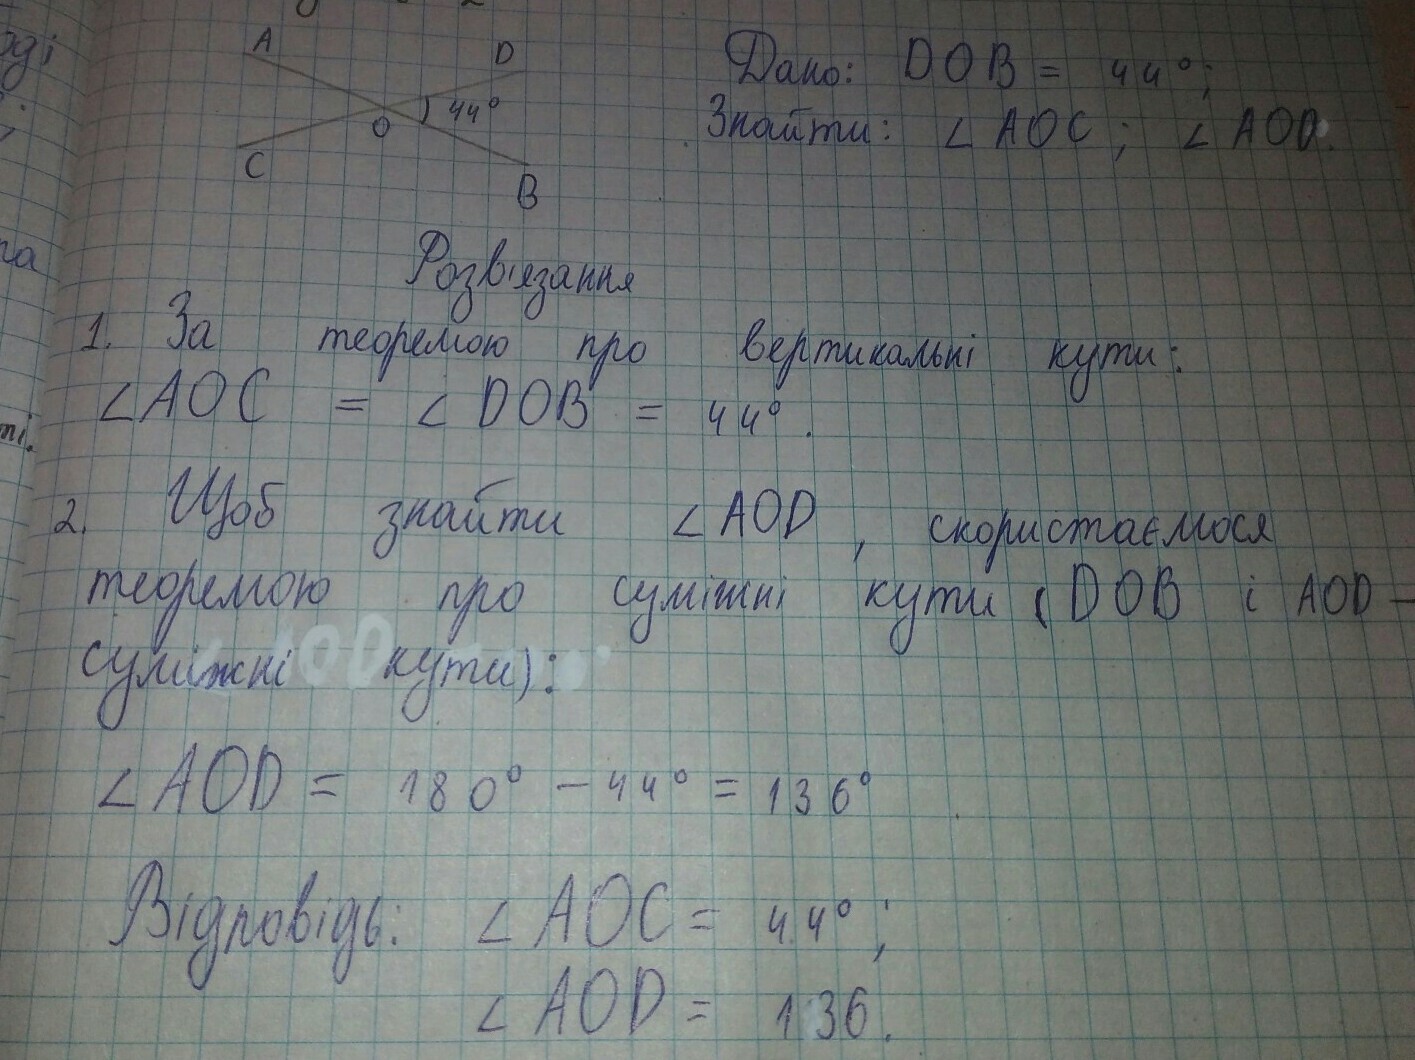 A
D
44°
O
C
B
Дано: DOB = 44°;
Знайти: ∠ AOC; ∠ AOD.
Розв'язання
1. За теоремою про вертикальні кути:
∠AOC = ∠DOB = 44°.
2. Щоб знайти ∠AOD, скористаємося
теоремою про суміжні кути (DOB і AOD –
суміжні кути):
∠AOD = 180° – 44° = 136°.
Відповідь: ∠AOC = 44°;
∠AOD = 136.